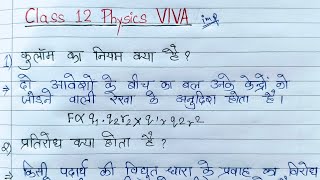 Class 12 Physics VIVA imp
1) कुलॉम का नियम क्या है?
⇒ दो आवेशों के बीच का बल उनके केन्द्रों को
जोड़ने वाली रेखा के अनुदिश होता है।
2) प्रतिरोध क्या होता है?
⇒ किसी पदार्थ की विद्युत धारा के प्रवाह का विरोध